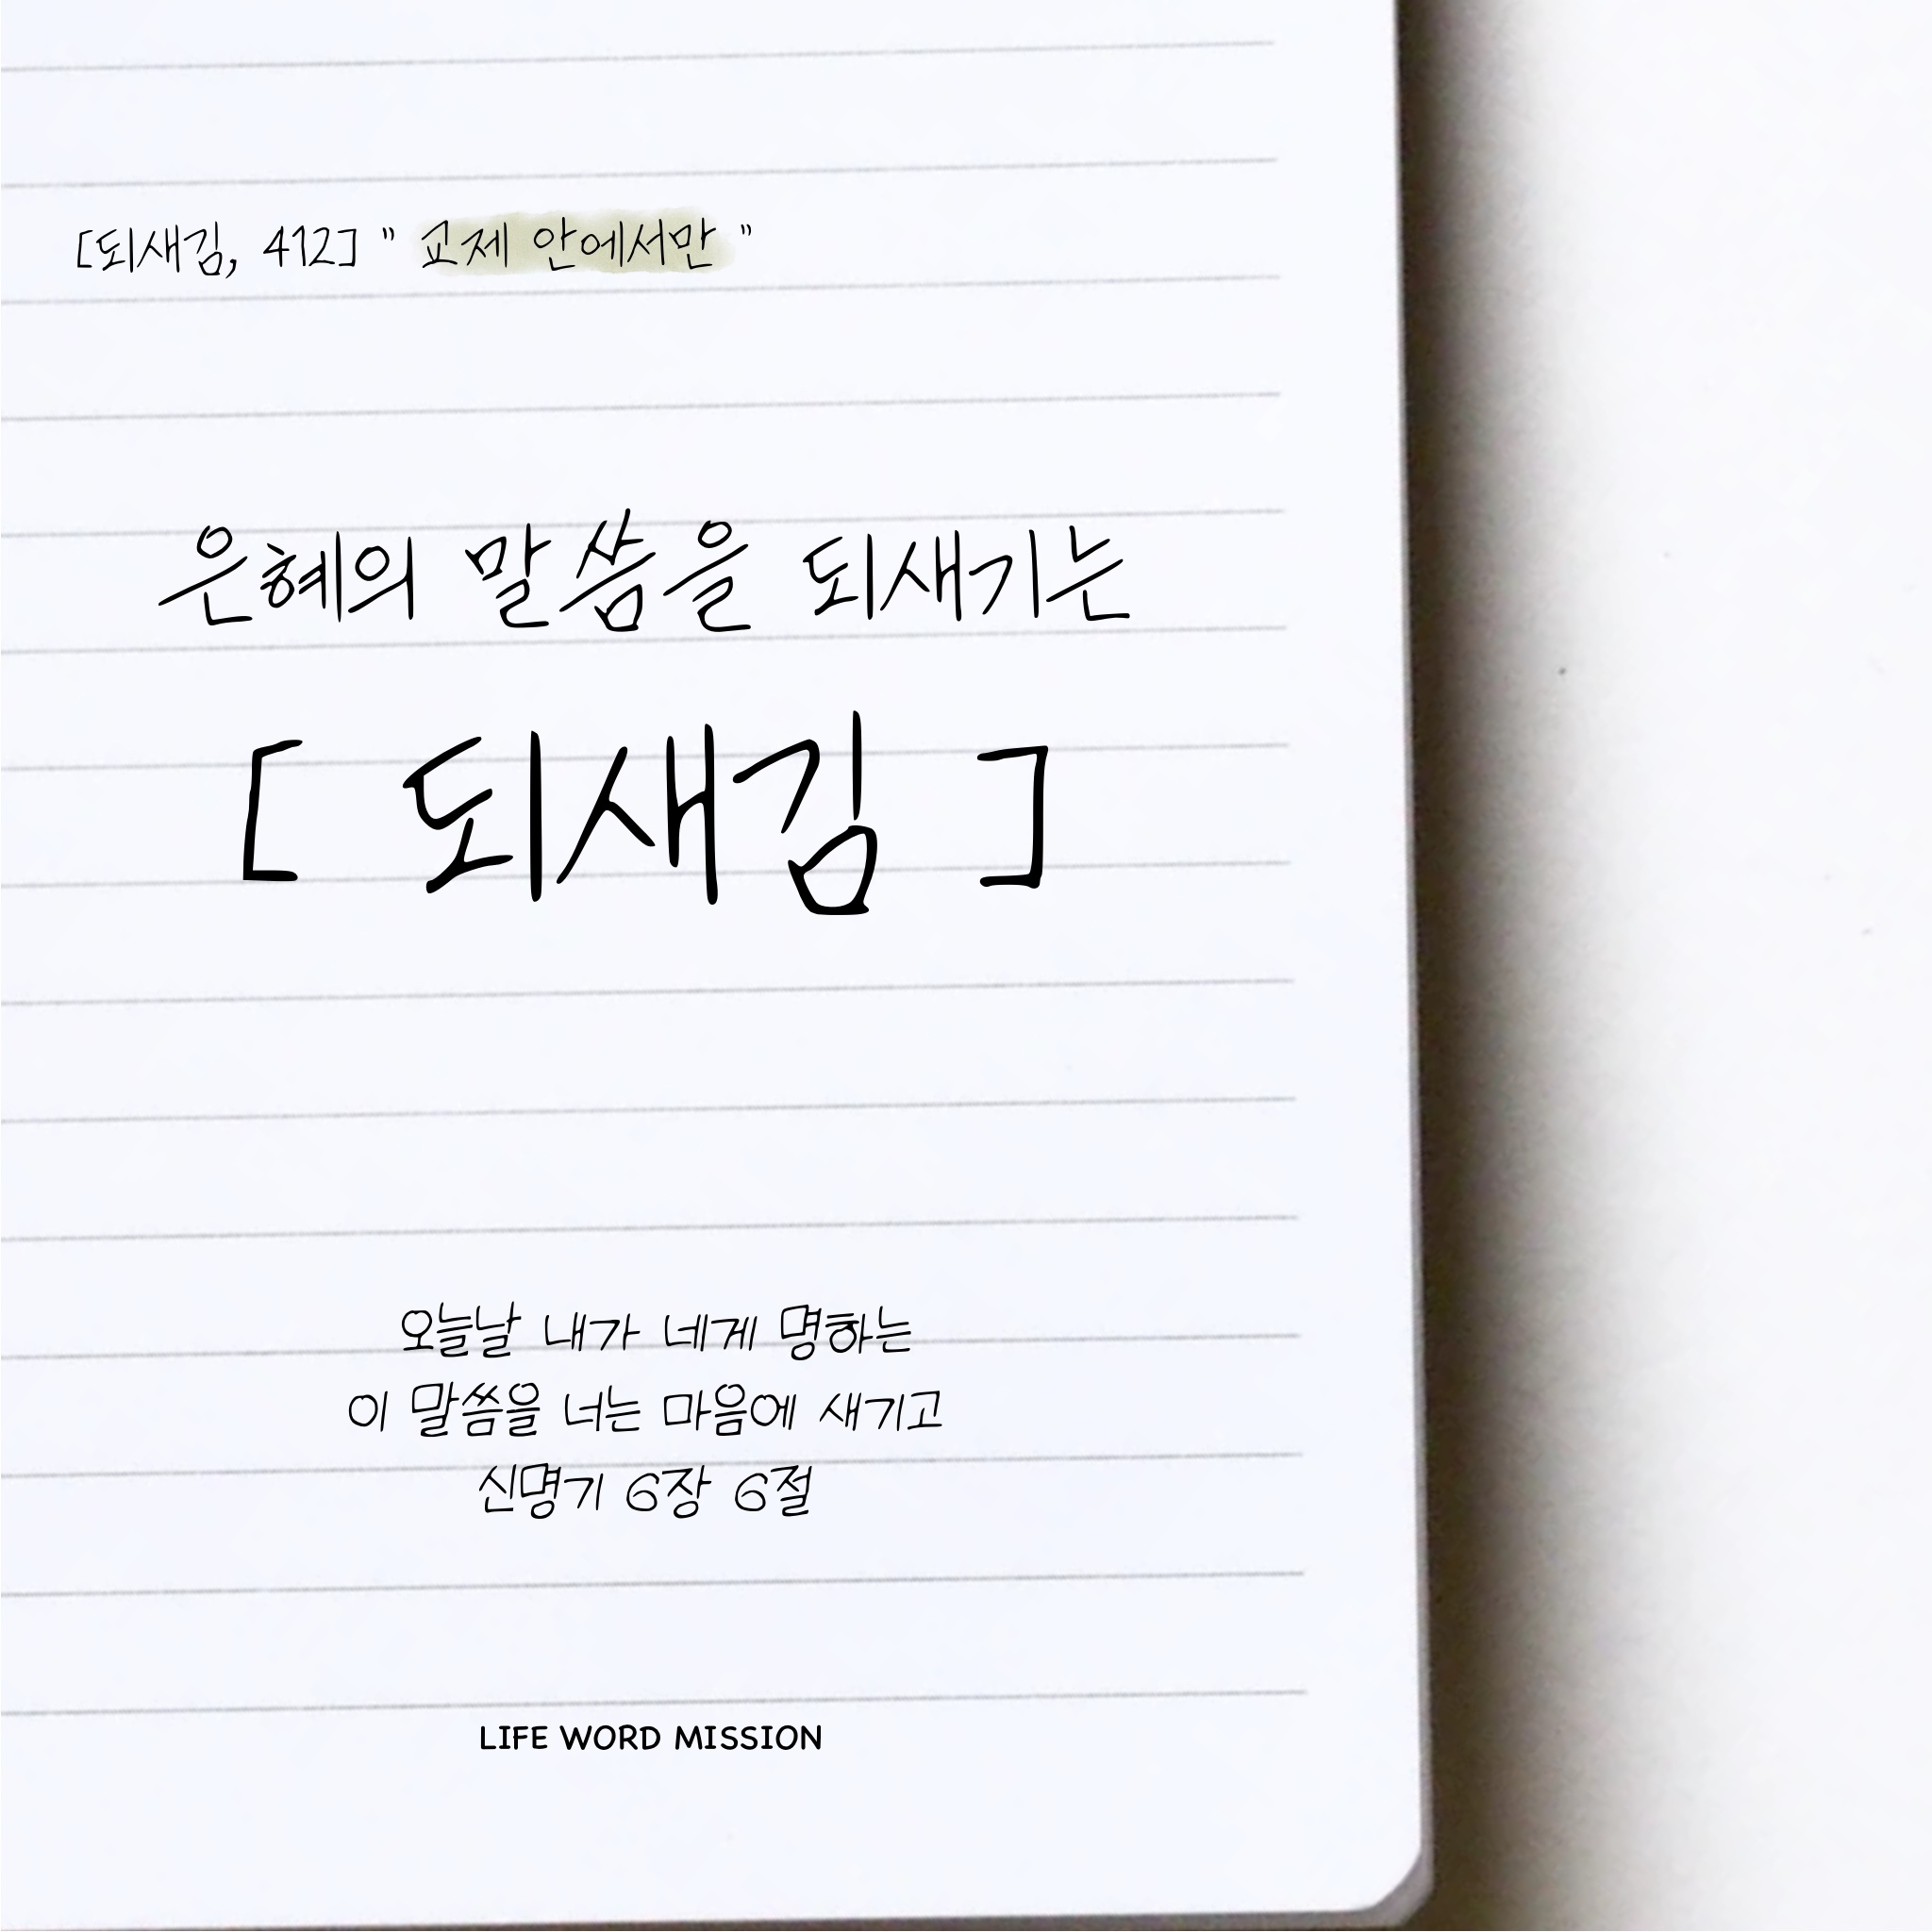 [되새김, 412] " 교제 안에서만 "
은혜의 말씀을 되새기는
[ 되새김 ]
오늘날 내가 네게 명하는
이 말씀을 너는 마음에 새기고
신명기 6장 6절
LIFE WORD MISSION